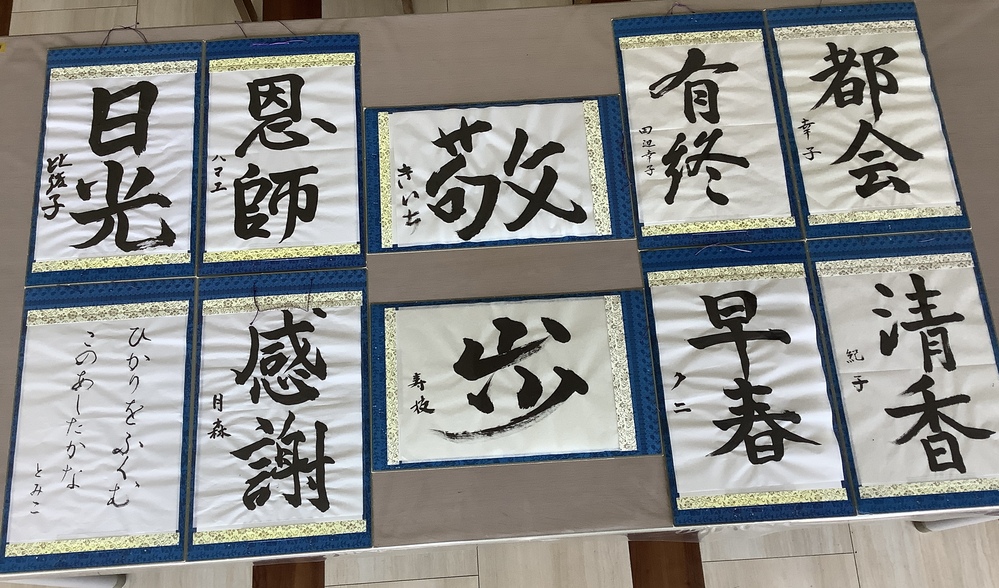 日光
恩師
ハマエ
敬
きいち
有終
田辺幸子
都会
幸子
ひかりをふくむ
このあしたかな
とみこ
感謝
月森
歩
寿枝
早春
清香
紀子